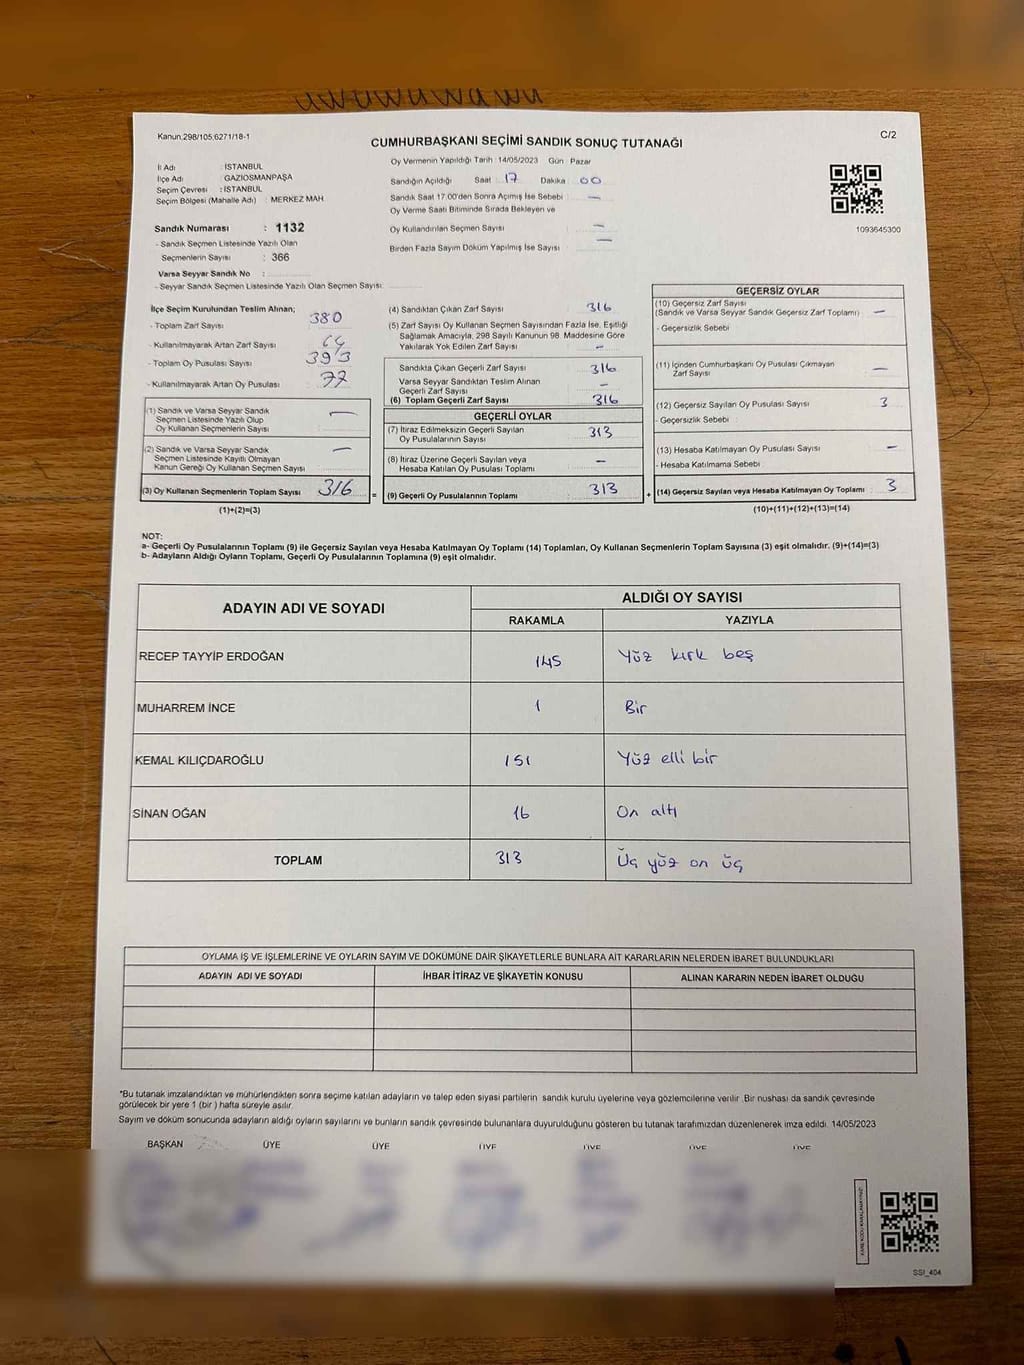 Kanun.298/105,6271/18-1
C/2
CUMHURBAŞKANI SEÇİMİ SANDIK SONUÇ TUTANAĞI
İl Adı : İSTANBUL
İlçe Adı : GAZİOSMANPAŞA
Seçim Çevresi : İSTANBUL
Seçim Bölgesi (Mahalle Adı) : MERKEZ MAH.
Oy Vermenin Yapıldığı Tarih :14/05/2023 Gün : Pazar
Sandığın Açıldığı Saat : 17 Dakika : 00
Sandık Saat 17.00'den Sonra Açımış İse Sebebi : —
Oy Verme Saati Bitiminde Sırada Bekleyen ve
Oy Kullandırılan Seçmen Sayısı : —
Birden Fazla Sayım Döküm Yapılmış İse Sayısı : —
1093645300
Sandık Numarası : 1132
- Sandık Seçmen Listesinde Yazılı Olan
Seçmenlerin Sayısı : 366
Varsa Seyyar Sandık No :
- Seyyar Sandık Seçmen Listesinde Yazılı Olan Seçmen Sayısı:
İlçe Seçim Kurulundan Teslim Alınan;
- Toplam Zarf Sayısı 380
- Kullanılmayarak Artan Zarf Sayısı 64
- Toplam Oy Pusulası Sayısı 393
- Kullanılmayarak Artan Oy Pusulası 77
(1) Sandık ve Varsa Seyyar Sandık
Seçmen Listesinde Yazılı Olup
Oy Kullanan Seçmenlerin Sayısı —
(2) Sandık ve Varsa Seyyar Sandık
Seçmen Listesinde Kayıtlı Olmayan
Kanun Gereği Oy Kullanan Seçmen Sayısı —
(3) Oy Kullanan Seçmenlerin Toplam Sayısı 316 =
(1)+(2)=(3)
(4) Sandıktan Çıkan Zarf Sayısı 316
(5) Zarf Sayısı Oy Kullanan Seçmen Sayısından Fazla İse, Eşitliği
Sağlamak Amacıyla, 298 Sayılı Kanunun 98. Maddesine Göre
Yakılarak Yok Edilen Zarf Sayısı : —
Sandıkta Çıkan Geçerli Zarf Sayısı 316
Varsa Seyyar Sandıktan Teslim Alınan
Geçerli Zarf Sayısı —
(6) Toplam Geçerli Zarf Sayısı 316
GEÇERLİ OYLAR
(7) İtiraz Edilmeksizin Geçerli Sayılan
Oy Pusulalarının Sayısı 313
(8) İtiraz Üzerine Geçerli Sayılan veya
Hesaba Katılan Oy Pusulası Toplamı —
(9) Geçerli Oy Pusulalarının Toplamı 313 +
GEÇERSİZ OYLAR
(10) Geçersiz Zarf Sayısı
(Sandık ve Varsa Seyyar Sandık Geçersiz Zarf Toplamı) —
- Geçersizlik Sebebi
(11) İçinden Cumhurbaşkanı Oy Pusulası Çıkmayan
Zarf Sayısı —
(12) Geçersiz Sayılan Oy Pusulası Sayısı 3
- Geçersizlik Sebebi :
(13) Hesaba Katılmayan Oy Pusulası Sayısı —
- Hesaba Katılmama Sebebi
(14) Geçersiz Sayılan veya Hesaba Katılmayan Oy Toplamı 3
(10)+(11)+(12)+(13)=(14)
NOT:
a- Geçerli Oy Pusulalarının Toplamı (9) ile Geçersiz Sayılan veya Hesaba Katılmayan Oy Toplamı (14) Toplamları, Oy Kullanan Seçmenlerin Toplam Sayısına (3) eşit olmalıdır. (9)+(14)=(3)
b- Adayların Aldığı Oyların Toplamı, Geçerli Oy Pusulalarının Toplamına (9) eşit olmalıdır.
ADAYIN ADI VE SOYADI
ALDIĞI OY SAYISI
RAKAMLA YAZIYLA
RECEP TAYYİP ERDOĞAN 145 Yüz kırk beş
MUHARREM İNCE 1 Bir
KEMAL KILIÇDAROĞLU 151 Yüz elli bir
SİNAN OĞAN 16 On altı
TOPLAM 313 Üç yüz on üç
OYLAMA İŞ VE İŞLEMLERİNE VE OYLARIN SAYIM VE DÖKÜMÜNE DAİR ŞİKAYETLERLE BUNLARA AİT KARARLARIN NELERDEN İBARET BULUNDUKLARI
ADAYIN ADI VE SOYADI İHBAR İTİRAZ VE ŞİKAYETİN KONUSU ALINAN KARARIN NEDEN İBARET OLDUĞU
*Bu tutanak imzalandıktan ve mühürlendikten sonra seçime katılan adayların ve talep eden siyasi partilerin sandık kurulu üyelerine veya gözlemcilerine verilir .Bir nushası da sandık çevresinde
görülecek bir yere 1 (bir ) hafta süreyle asılır.
Sayım ve döküm sonucunda adayların aldığı oyların sayılarını ve bunların sandık çevresinde bulunanlara duyurulduğunu gösteren bu tutanak tarafımızdan düzenlenerek imza edildi. 14/05/2023
BAŞKAN ÜYE ÜYE ÜYE ÜYE ÜYE ÜYE
SSI_404